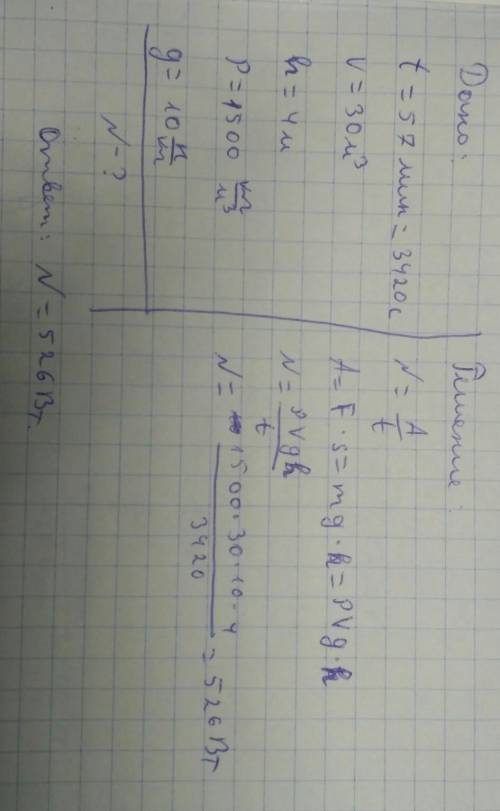 Дано:
t = 57 мин = 3420с
V = 30 м³
h = 4м
ρ = 1500 кг/м³
g = 10 Н/кг
N - ?
Решение:
N = A/t
A = F · s = mg · h = ρVg · h
N = ρVgh/t
N = 1500·30·10·4/3420 = 526 Вт
Ответ: N = 526 Вт.